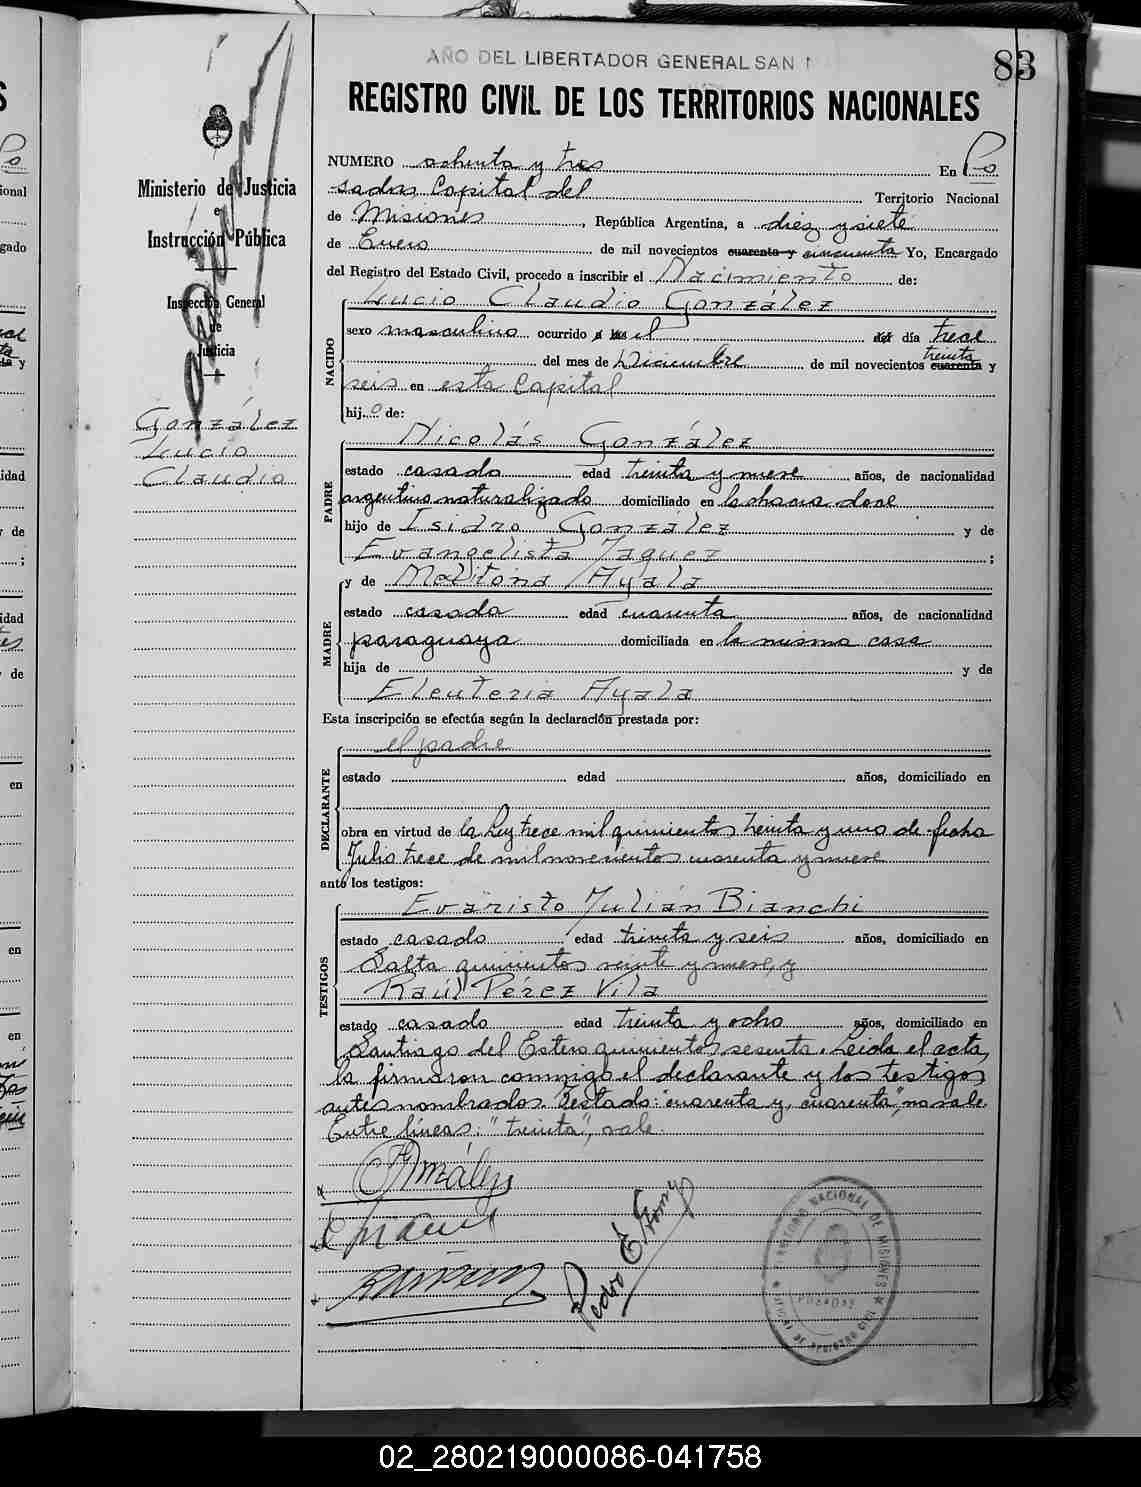 AÑO DEL LIBERTADOR GENERAL SAN M
83
REGISTRO CIVIL DE LOS TERRITORIOS NACIONALES
Ministerio de Justicia
e
Instrucción Pública
Inspección General
de
Justicia
González
Lucio
Claudio
NUMERO ochenta y tres En Po
sadas, Capital del Territorio Nacional
de Misiones, República Argentina, a diez y siete
de Enero de mil novecientos cuarenta y cincuenta Yo, Encargado
del Registro del Estado Civil, procedo a inscribir el Nacimiento de:
Lucio Claudio González
NACIDO
sexo masculino ocurrido el día trece
del mes de Diciembre de mil novecientos treinta cuarenta y
seis en esta Capital
hijo de:
PADRE
Nicolás González
estado casado edad treinta y nueve años, de nacionalidad
argentino naturalizado domiciliado en la chacra doce
hijo de Isidro González y de
Evangelista Jaquez;
MADRE
y de Melitona Ayala
estado casada edad cuarenta años, de nacionalidad
paraguaya domiciliada en la misma casa
hija de y de
Eleuteria Ayala
Esta inscripción se efectúa según la declaración prestada por:
DECLARANTE
el padre
estado edad años, domiciliado en
obra en virtud de la Ley trece mil quinientos treinta y uno de fecha
Julio trece de mil novecientos cuarenta y nueve
ante los testigos:
TESTIGOS
Evaristo Julián Bianchi
estado casado edad treinta y seis años, domiciliado en
Salta quinientos veinte y nueve, y
Raúl Pérez Vila
estado casado edad treinta y ocho años, domiciliado en
Santiago del Estero quinientos sesenta. Leída el acta,
la firmaron conmigo el declarante y los testigos
antes nombrados. Testado: "cuarenta y, cuarenta", no vale.
Entre líneas: "treinta", vale.
González
Pedro E.
TERRITORIO NACIONAL DE MISIONES
POSADAS
02_280219000086-041758